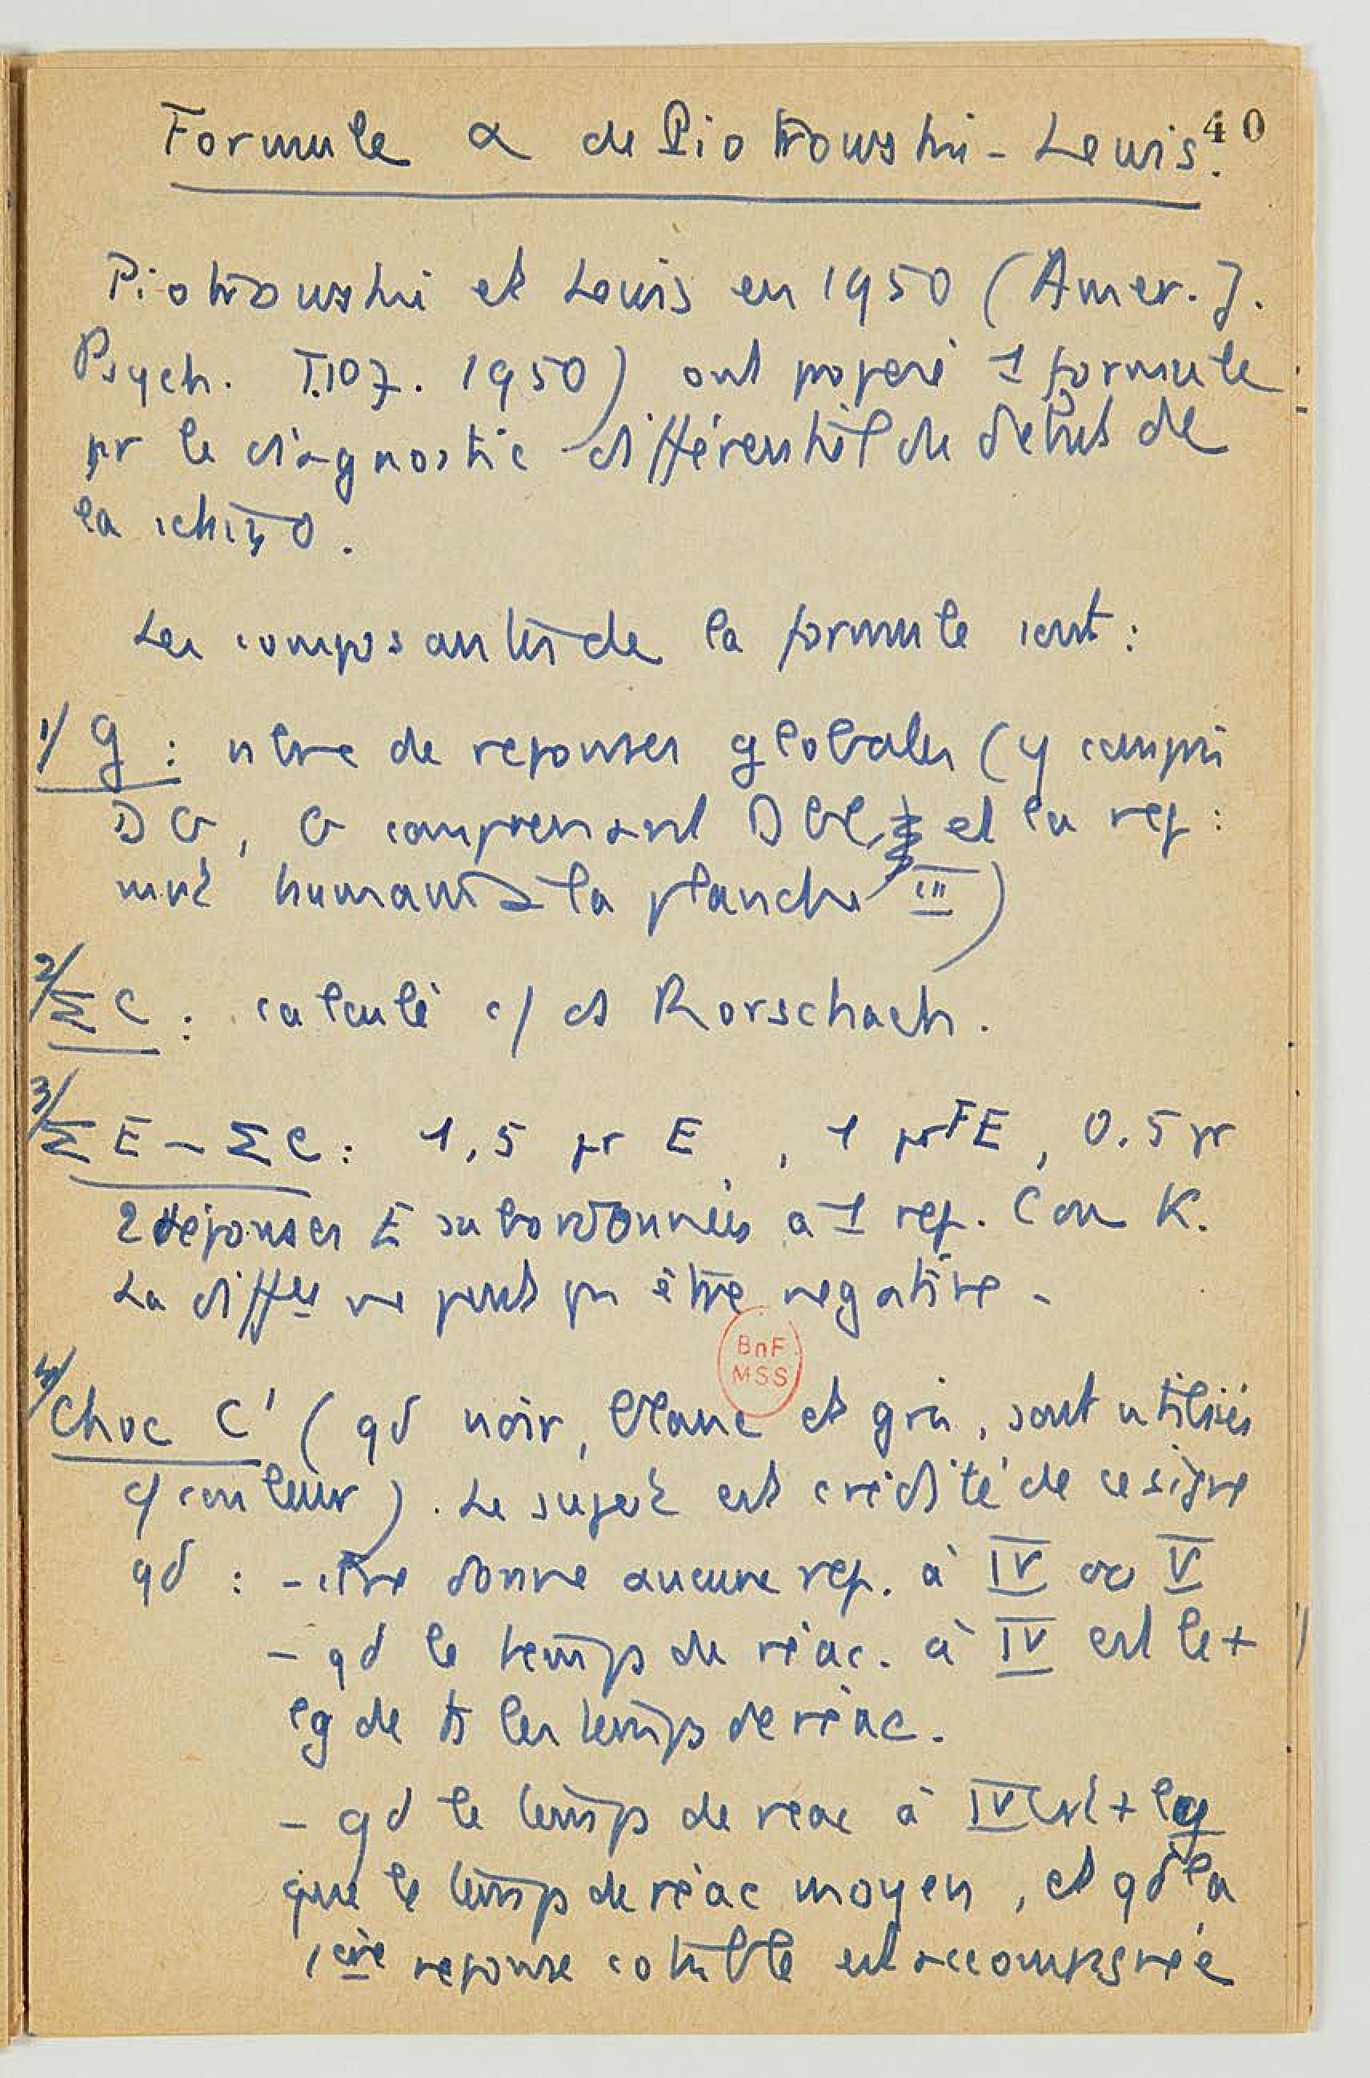 40
Formule α de Piotrowski - Lewis.
Piotrowski et Lewis en 1950 (Amer. J.
Psych. T.107. 1950) ont proposé 1 formule
pr le diagnostic différentiel du début de
la schizo.
Les composantes de la formule sont :
1/ g : nbre de reponses globales (y compris
DG, G comprenant Dbl, et les rep :
mvt humain à la planche III)
2/ Σ C : calculé c/ ds Rorschach.
3/ Σ E - Σ C : 1,5 pr E , 1 pr FE, 0.5 pr
2 réponses E subordonnées à 1 rep. C ou K.
La diffce ne peut pas être negative -
4/ Choc C' (qd noir, blanc et gris, sont utilisés
c/ couleur). Le sujet est crédité de ce signe
qd : - il ne donne aucune rep. à IV ou V
- qd le temps de réac. à IV est le +
lg de ts les temps de réac.
- qd le temps de réac à IV est + lg
que le temps de réac moyen, et qd la
1ère reponse cotable est accompagnée
BnF
MSS